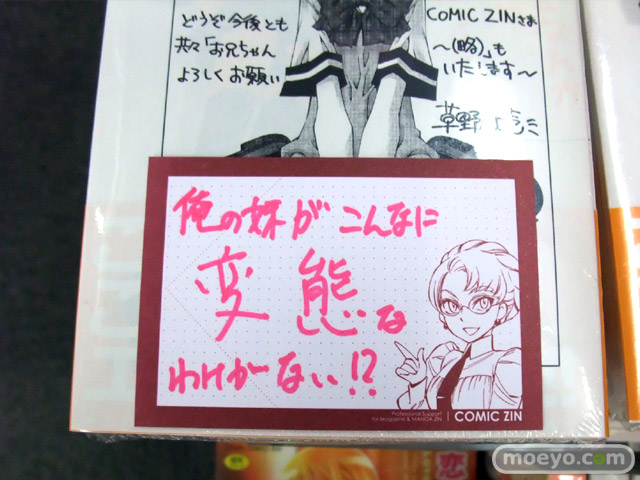 どうぞ今後とも
共々「お兄ちゃん
よろしくお願い
COMIC ZINさま
〜(略)」も
いたします〜
草野
俺の妹がこんなに
変態な
わけがない!?
Professional Support
for Magazine & MANGA ZIN
COMIC ZIN
moeyo.com